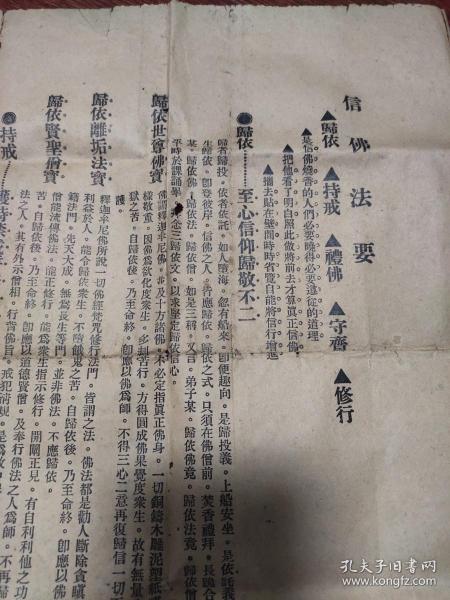 信佛法要
▲歸依 ▲持戒 ▲禮佛 ▲守齋 ▲修行
▲是信佛燒香的人們必要曉得必要遵從的道理
▲把他看了明白照此做將前去才算眞正信佛
▲攜去貼在壁間時時省覽自能將信行增進
●歸依………至心信仰歸敬不二
歸者歸投。依者依託。如人墮海。忽有船來。卽便趣向。是歸投義。上船安坐。是依託義
生歸依。卽登彼岸。信佛之人。首應歸依。歸依之式。只須在佛僧前。焚香禮拜。長跪合
某。歸依佛。歸依法。歸依僧。如是三稱。又言。弟子某。歸依佛竟。歸依法竟。歸依僧
平時於課誦畢。念三歸依文。以求堅定歸依信心。
歸依世尊佛寶
佛謂釋迦牟尼佛。及十方諸佛。必定指眞正佛身。一切銅鑄木雕泥塑紙
樣敬重。因佛爲欲化度衆生。多刦苦行。方得圓成佛果覺度衆生。故有無量
獄之苦。自歸依後。乃至命終。卽應以佛爲師。不得三心二意再復歸信一切
護。
歸依離垢法寶
釋迦牟尼佛所說一切佛經梵咒修行法門。皆謂之法。佛法都是勸人斷除貪瞋
利益於人。能令歸依衆生。不墮餓鬼之苦。自歸依後。乃至命終。卽應以佛
籍法門。先天大成。無爲長生等門。並非佛法。不應歸依。
歸依賢聖僧寶
僧能流傳佛法。修行佛法。能爲衆生指示修行。開闢正見。有自利利他之功
苦。自歸依後。乃至命終。卽應以道德賢僧。及奉行佛法之人爲師。不再歸
法之人。其有外示僧相。行背佛旨。戒犯
●持戒
孔夫子旧书网
book.kongfz.com